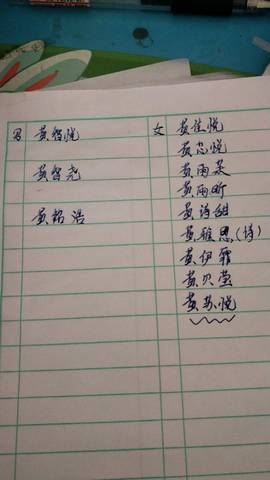 男 黄智悦 女 黄佳悦
黄芯悦
黄智尧 黄雨菜
黄雨昕
黄韶浩 黄诗甜
黄雅恩(诗)
黄伊霏
黄贝莹
黄苏悦